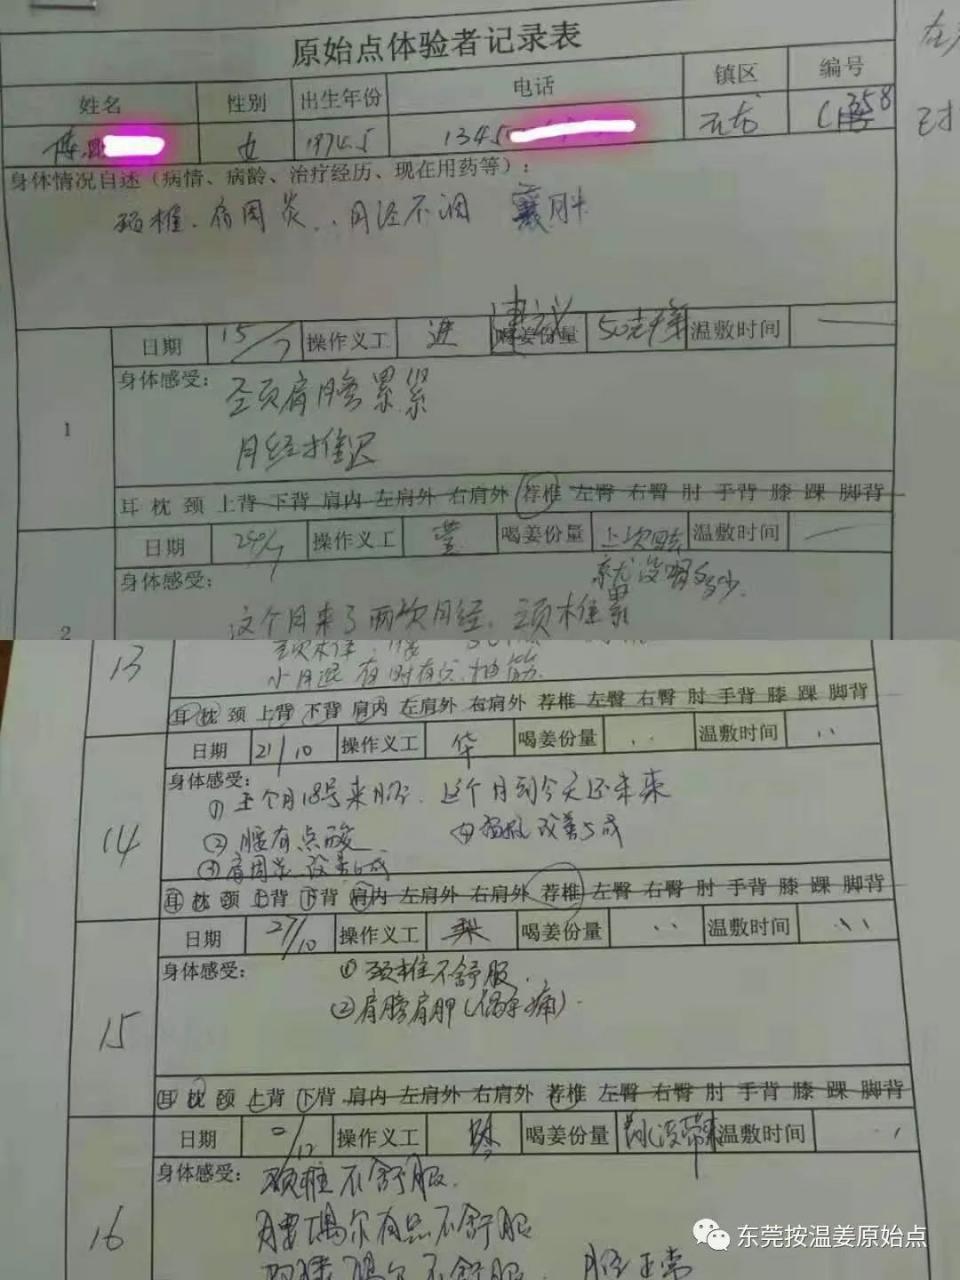 原始点体验者记录表
姓名 性别 出生年份 电话 镇区 编号
女 1974.5 1345
身体情况自述（病情、病龄、治疗经历、现在用药等）：
颈椎、肩周炎、月经不调
日期 15/7 操作义工 进 喝姜份量 50克 温敷时间 —
1
身体感受：
颈肩膀累紧
月经推迟
耳 枕 颈 上背 下背 肩内 左肩外 右肩外 荐椎 左臀 右臀 肘 手背 膝 踝 脚背
日期 操作义工 喝姜份量 上次回去 温敷时间 —
就没喝多少.
身体感受：
2
这个月来了两次月经、颈椎累
13
小月退 有时有点抽筋.
耳 枕 颈 上背 下背 肩内 左肩外 右肩外 荐椎 左臀 右臀 肘 手背 膝 踝 脚背
日期 21/10 操作义工 华 喝姜份量 温敷时间
14
身体感受：
① 上个月18号来月经. 这个月到今天还未来
② 腰有点酸 ④ 改善5成
③ 肩周炎 改善6成
耳 枕 颈 上背 下背 肩内 左肩外 右肩外 荐椎 左臀 右臀 肘 手背 膝 踝 脚背
日期 27/10 操作义工 梨 喝姜份量 温敷时间
15
身体感受：
① 颈椎不舒服.
② 肩膀肩胛(偶尔痛).
耳 枕 颈 上背 下背 肩内 左肩外 右肩外 荐椎 左臀 右臀 肘 手背 膝 踝 脚背
日期 操作义工 琴 喝姜份量 没带来 温敷时间
16
身体感受：
颈椎不舒服.
腰偶尔有点不舒服
偶尔不舒服. 月经正常
东莞按温姜原始点